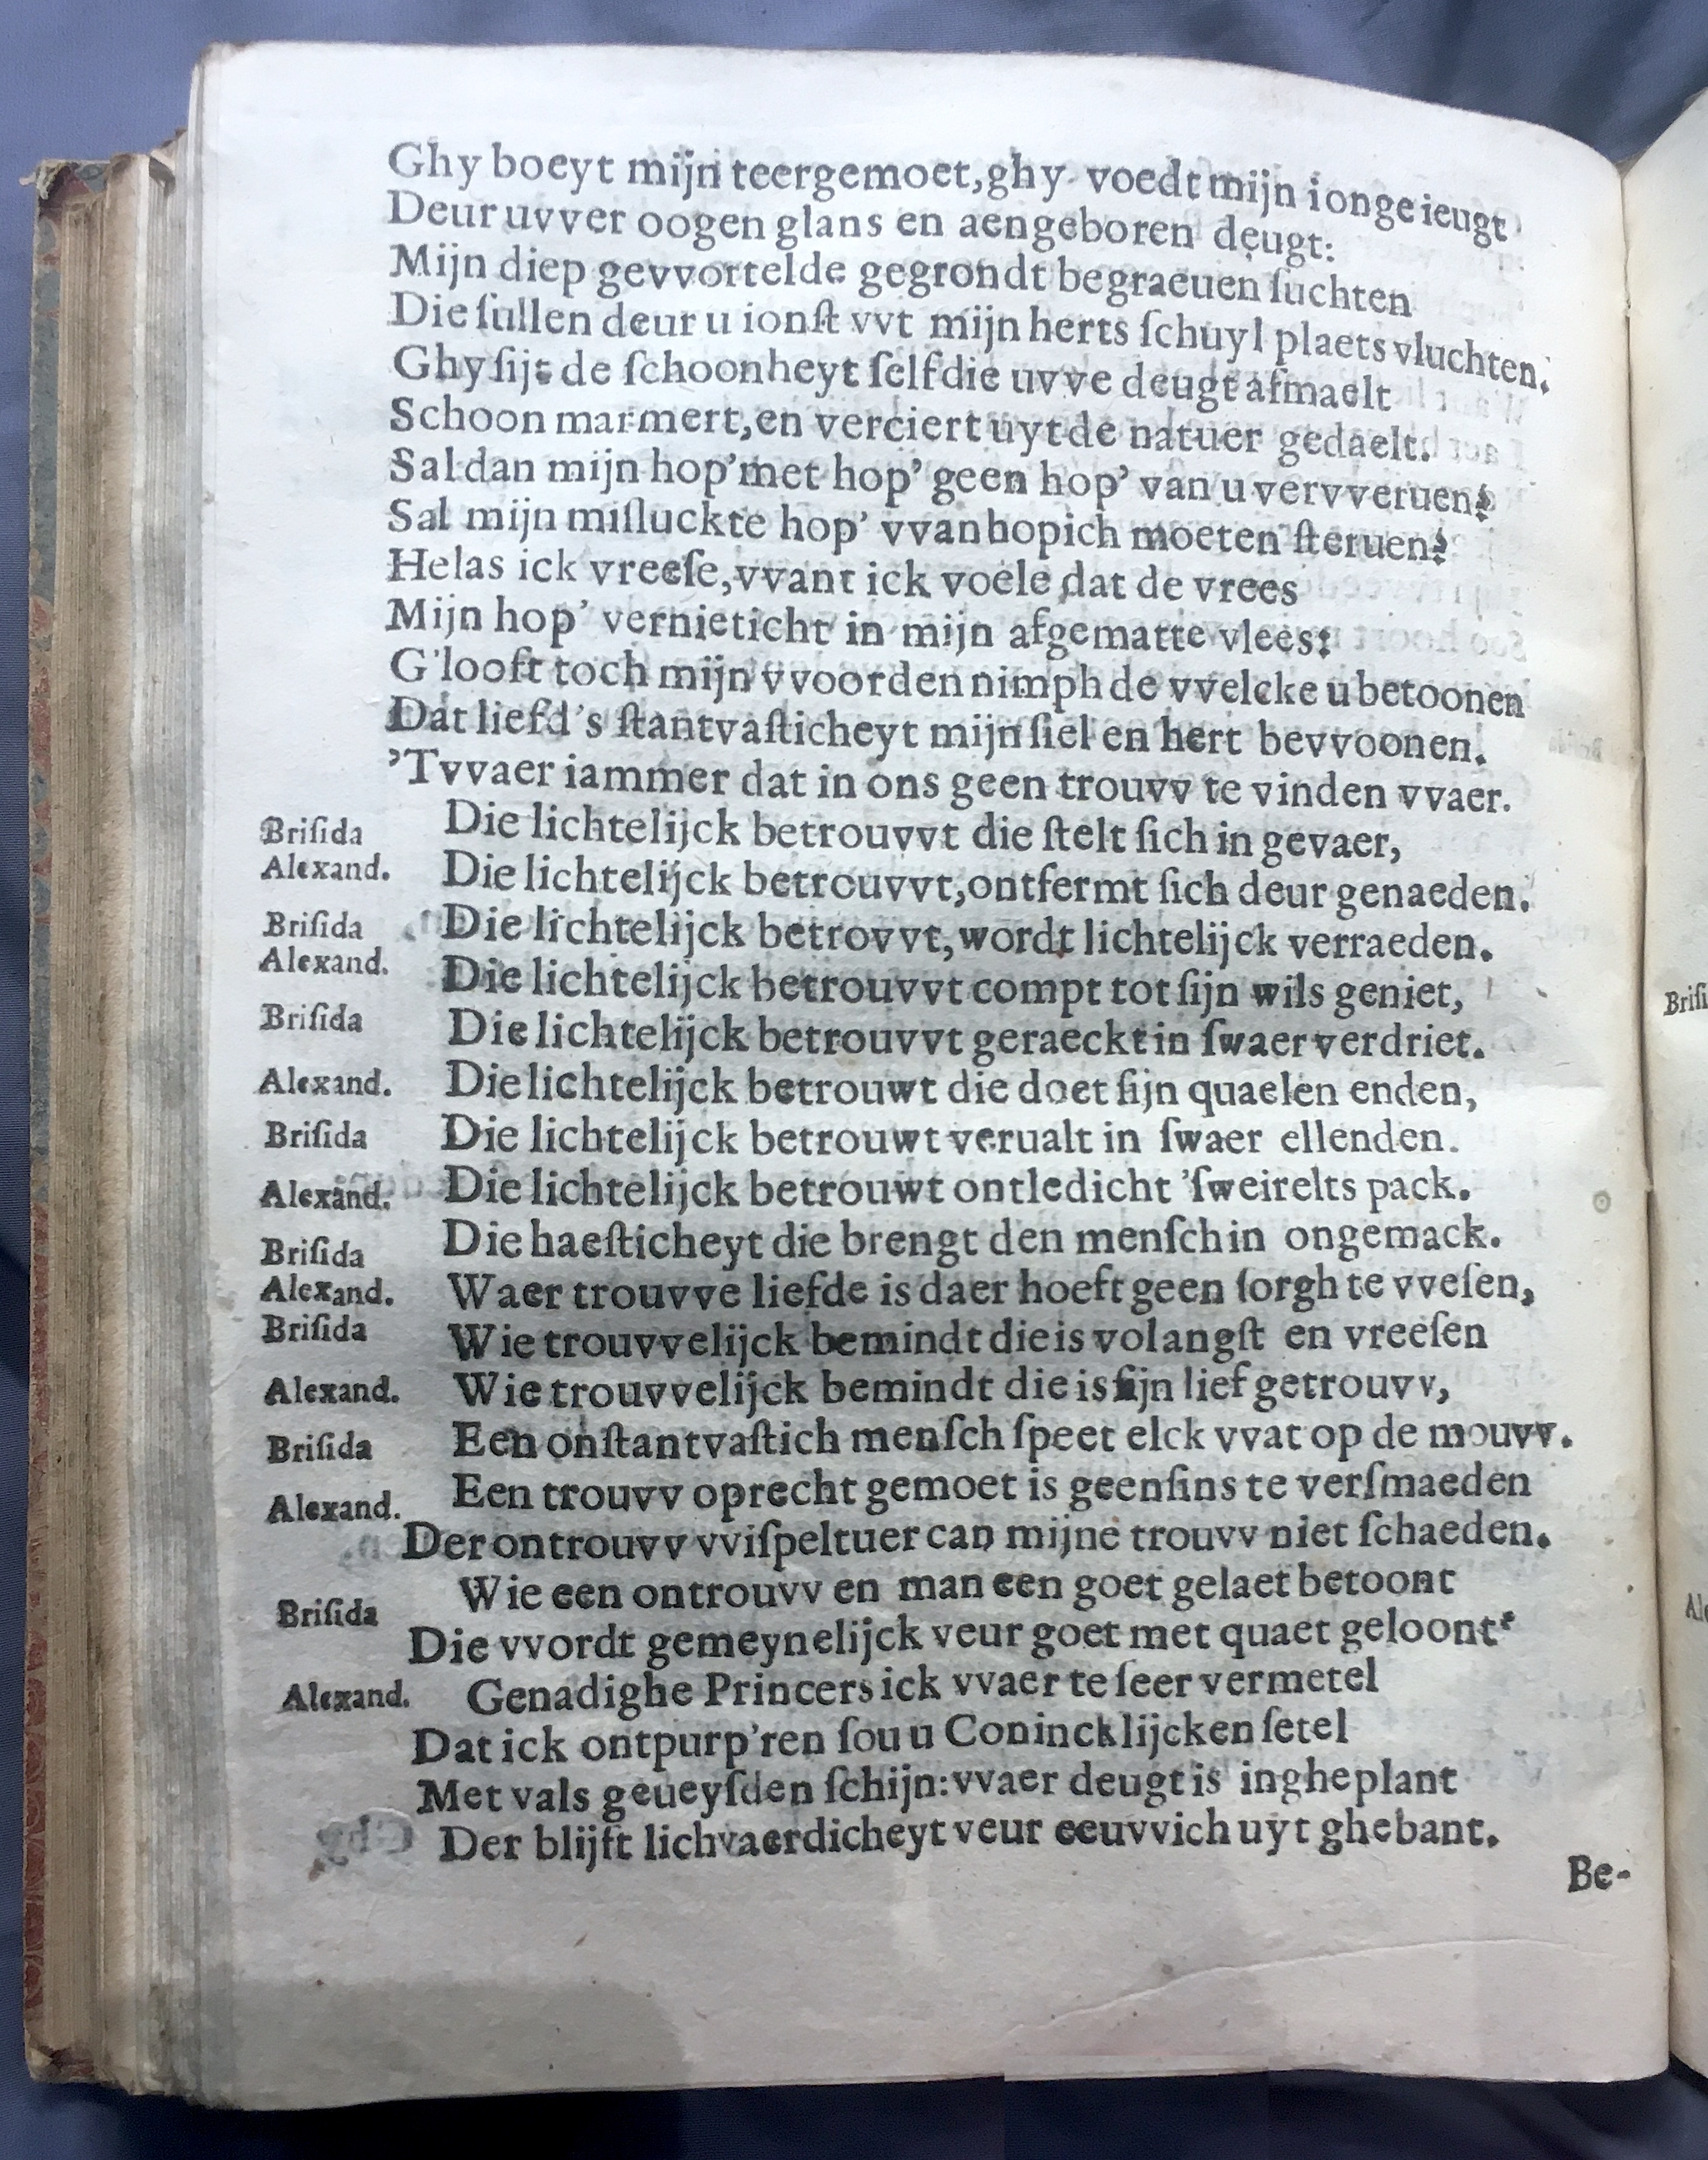 Ghy boeyt mijn teergemoet, ghy voedt mijn ionge ieugt
Deur uvver oogen glans en aengeboren deugt:
Mijn diep gevvortelde gegrondt begraeuen ſuchten
Die ſullen deur u ionſt vvt mijn herts ſchuyl plaets vluchten.
Ghy ſijt de ſchoonheyt ſelf die uvve deugt afmaelt
Schoon marmert, en verciert uyt de natuer gedaelt.
Sal dan mijn hop' met hop' geen hop' van u vervveruen?
Sal mijn miſluckte hop' vvanhopich moeten ſteruen?
Helas ick vreeſe, vvant ick voele dat de vrees
Mijn hop' vernieticht in mijn afgematte vlees:
G'looft toch mijn vvoorden nimph de vvelcke u betoonen
Dat liefd's ſtantvaſticheyt mijn ſiel en hert bevvoonen.
'Tvvaer iammer dat in ons geen trouvv te vinden vvaer.
Briſida Die lichtelijck betrouvvt die ſtelt ſich in gevaer,
Alexand. Die lichtelijck betrouvvt, ontfermt ſich deur genaeden.
Briſida Die lichtelijck betrovvt, wordt lichtelijck verraeden.
Alexand. Die lichtelijck betrouvvt compt tot ſijn wils geniet,
Briſida Die lichtelijck betrouvvt geraeckt in ſwaer verdriet.
Alexand. Die lichtelijck betrouwt die doet ſijn quaelen enden,
Briſida Die lichtelijck betrouwt verualt in ſwaer ellenden.
Alexand. Die lichtelijck betrouwt ontledicht 'ſweirelts pack.
Briſida Die haeſticheyt die brengt den menſch in ongemack.
Alexand. Waer trouvve liefde is daer hoeft geen ſorgh te vveſen,
Briſida Wie trouvvelijck bemindt die is vol angſt en vreeſen
Alexand. Wie trouvvelijck bemindt die is ſijn lief getrouvv,
Briſida Een onſtantvaſtich menſch ſpeet elck vvat op de mouvv.
Alexand. Een trouvv oprecht gemoet is geenſins te verſmaeden
Der ontrouvv vviſpeltuer can mijne trouvv niet ſchaeden.
Briſida Wie een ontrouvv en man een goet gelaet betoont
Die vvordt gemeynelijck veur goet met quaet geloont.
Alexand. Genadighe Princers ick vvaer te ſeer vermetel
Dat ick ontpurp'ren ſou u Conincklijcken ſetel
Met vals geueyſden ſchijn: vvaer deugt is ingheplant
Der blijft lichvaerdicheyt veur eeuvvich uyt ghebant.
Be-
Briſi
Ale